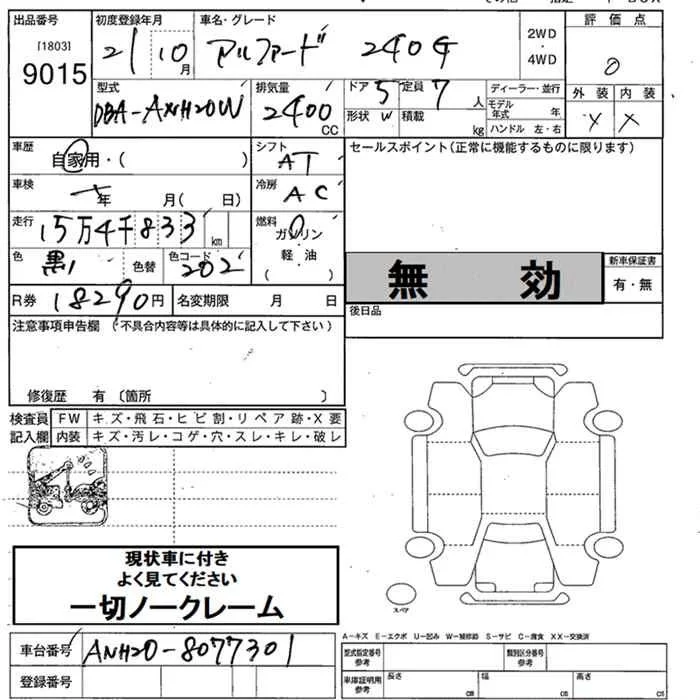 出品番号 初度登録年月 車名・グレード 評価点
[1803] 9015 21 10月 アルファード 240G 2WD・4WD 0
型式 排気量 ドア 5 定員 7人 ディーラー・並行 外装 内装
DBA-ANH20W 2400CC 形状 W 積載 kg モデル年式 年 ハンドル 左・右 Y X
車歴 自家用・( ) シフト AT セールスポイント(正常に機能するものに限ります)
車検 年 月( 日) 冷房 AC
走行 15万4千833km 燃料 ガソリン・軽油( )
色 黒 色替 色コード 202 無効 新車保証書 有・無
R券 18290円 名変期限 月 日 後日品
注意事項申告欄(不具合内容等は具体的に記入して下さい)
修復歴 有(箇所 )
検査員 FW キズ・飛石・ヒビ割・リペア跡・X要
記入欄 内装 キズ・汚レ・コゲ・穴・スレ・キレ・破レ
現状車に付き
よく見てください
一切ノークレーム
スペア
A-キズ E-エクボ U-凹み W-補修跡 S-サビ C-腐食 XX-交換済
車台番号 ANH20-8077301 型式指定番号 参考 類別区分番号 参考
登録番号 車庫証明用 参考 長さ cm 幅 cm 高さ cm